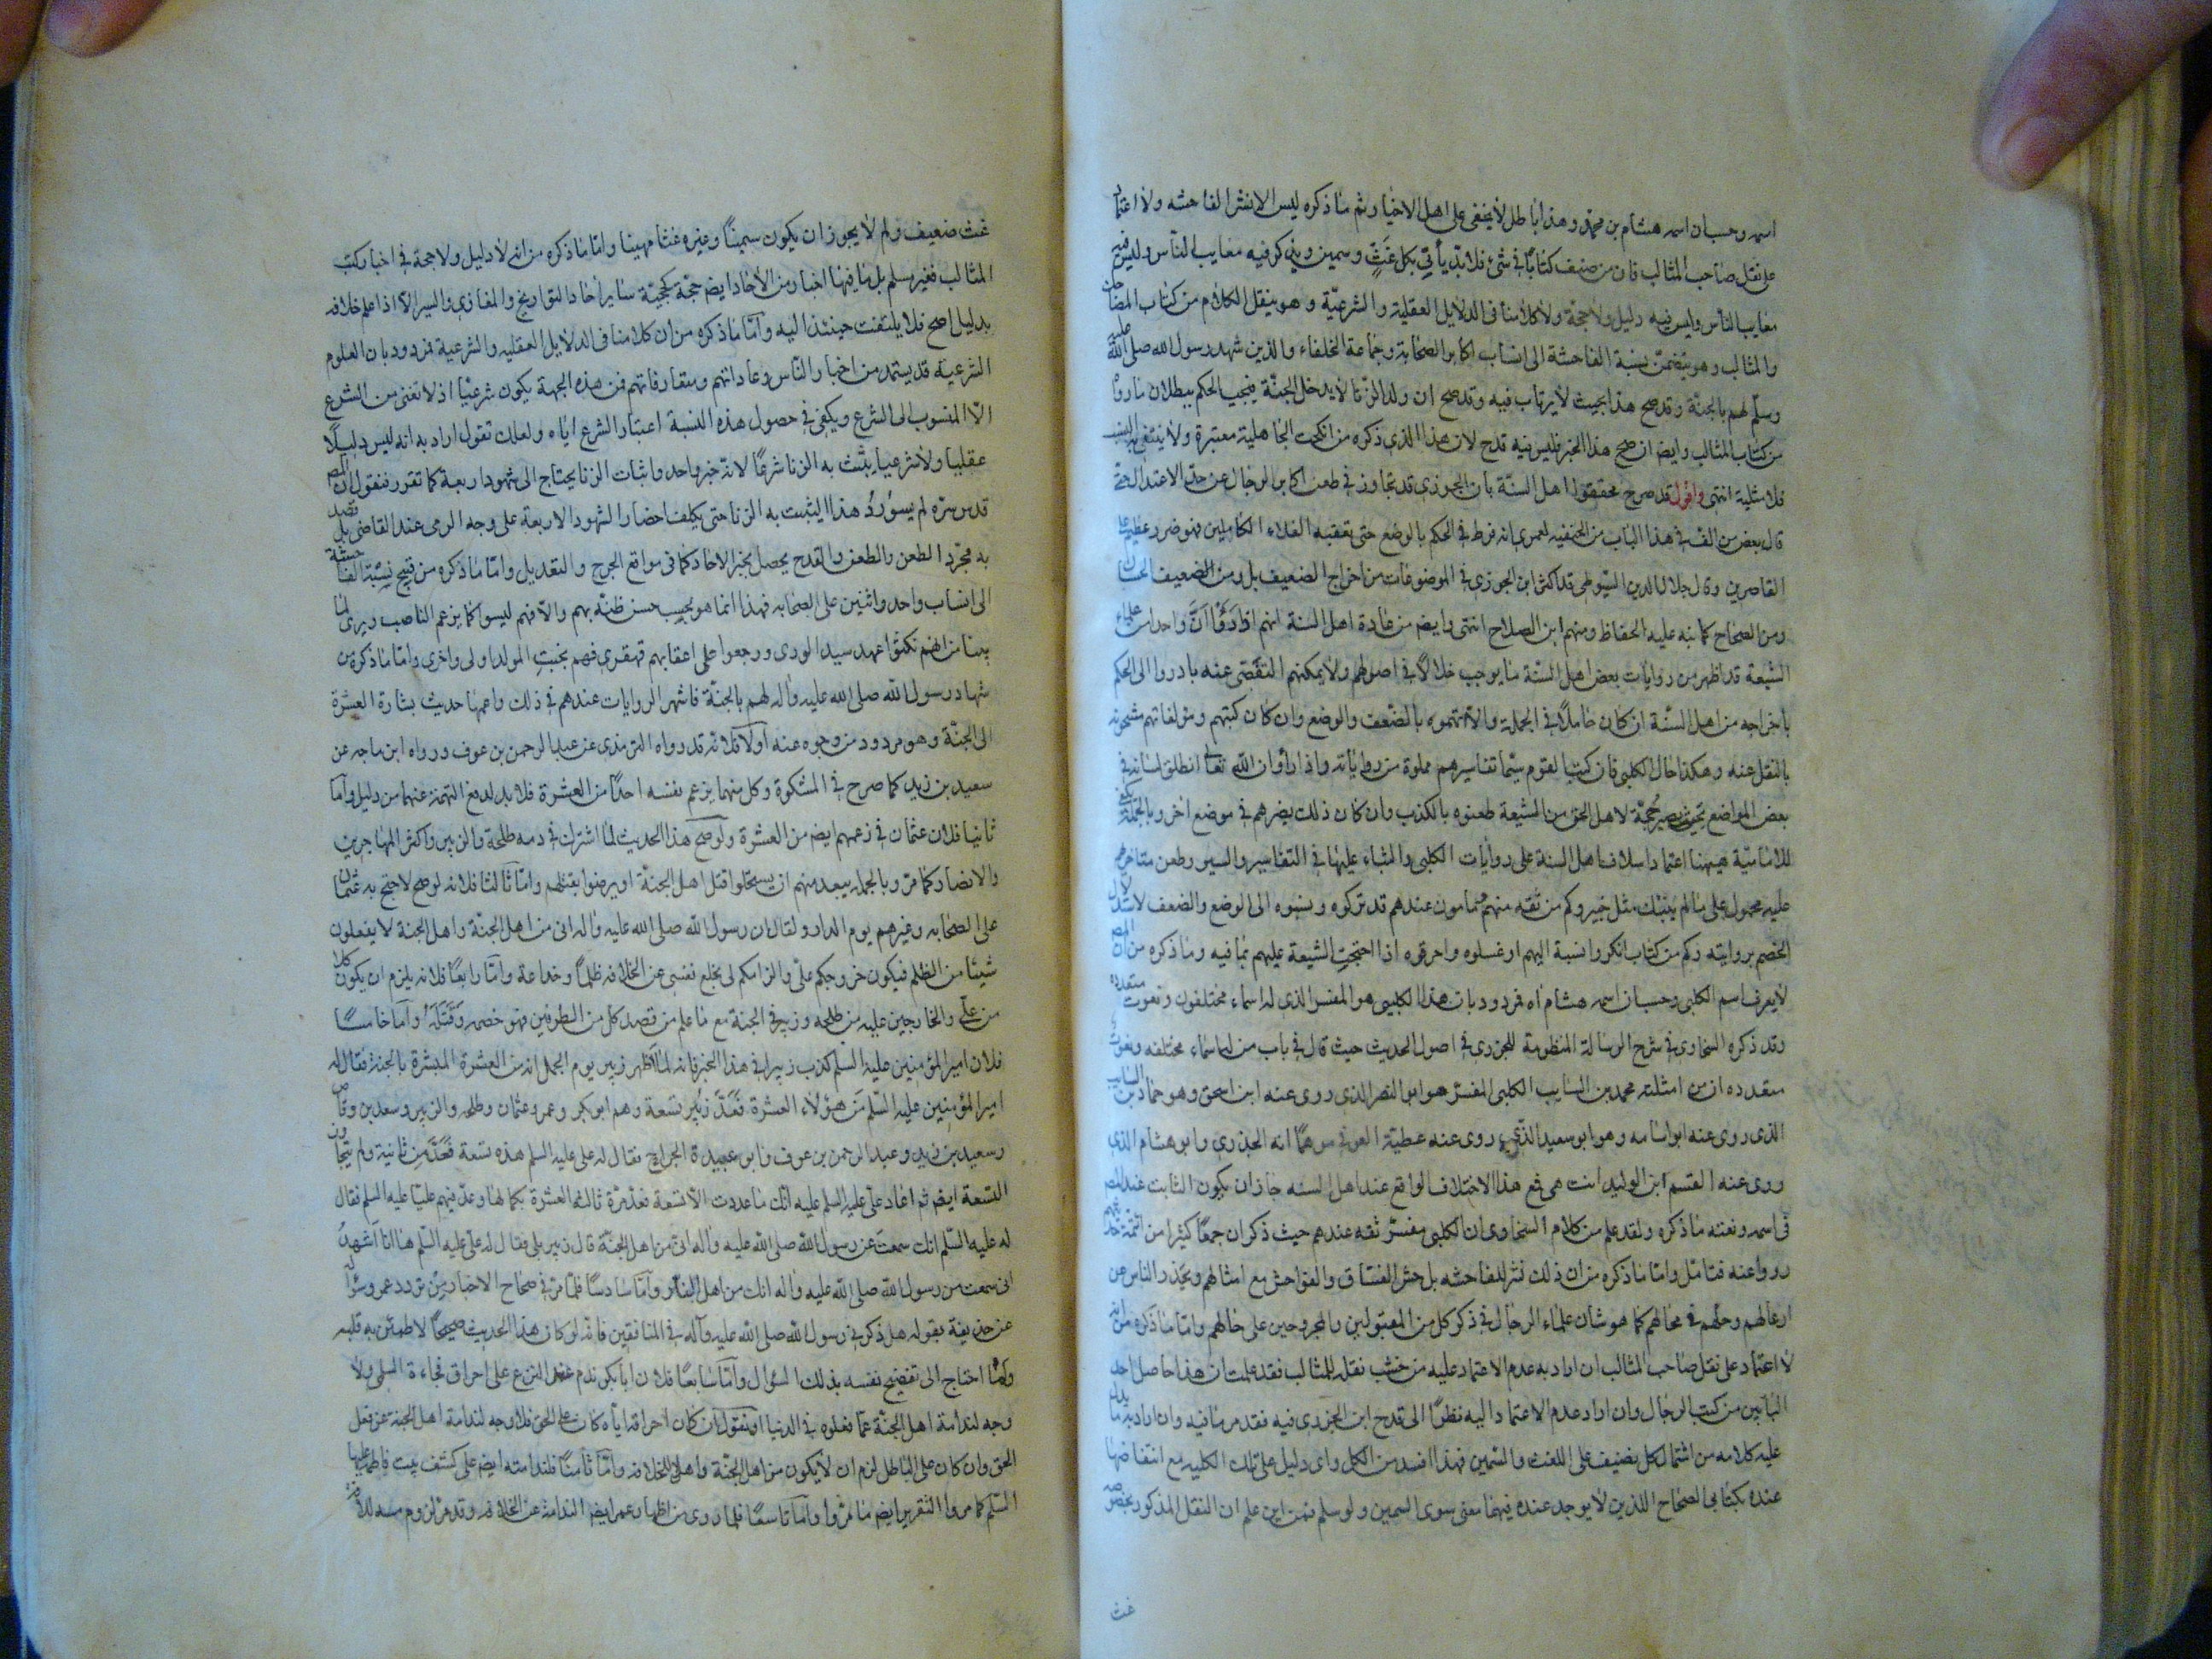 اسمه وحسبان اسمه هشام بن محمد وهذا باطل لا يخفى على اهل الاخبار ثم ما ذكره ليس الا نشر الفاحشه ولا اعتماد
على نقل صاحب المثالب فان من صنف كتابا في شئ فلا بد يأتي بكل غث وسمين ويذكر فيه معايب الناس وليس فيه
معايب الناس وليس فيه دليل ولا حجة ولا كلامنا في الدلايل العقلية والشرعية وهو ينقل الكلام من كتاب
والمثالب وهو يتضمن نسبة الفاحشة الى انساب اكابر الصحابة وجماعة الخلفاء والذين شهد رسول الله صلى الله عليه
وسلم لهم بالجنة وقد صح هذا بحيث لا يرتاب فيه وقد صح ان ولد الزنا لا يدخل الجنة فيجب الحكم ببطلان ما رووا
من كتاب المثالب وايضا ان صح هذا الخبر فليس فيه قدح لان هذا الذي ذكره من انكحت الجاهلية معتبرة ولا
فلا مثلبة انتهى واقول قد صرح محققوا اهل السنة بان الجوزي قد تجاوز في طعن اكابر الرجال عن حد الاعتدال حتى
قال بعض من الف في هذا الباب من الحنفيه لعمري انه فرط في الحكم بالوضع حتى تعقبه العلماء الكاملين فهو ضرر عظيم على
القاصرين وقال جلال الدين السيوطي قد اكثر ابن الجوزي في الموضوعات من اخراج الضعيف بل ومن الحسان
ومن الصحاح كما نبه عليه الحفاظ ومنهم ابن الصلاح انتهى وايضا من عادة اهل السنة انهم اذا رأوا ان واحدا من علماء
الشيعة قد اظهر من روايات بعض اهل السنة ما يوجب خلالا في اصولهم ولا يمكنهم التفصي عنه بادروا الى الحكم
باخراجه من اهل السنة ان كان خاملا في الجملة والا اتهموه بالضعف والوضع وان كان كتبهم ومؤلفاتهم مشحونه
بالنقل عنه وهكذا حال الكلبي فان كتب القوم سيما تفاسيرهم مملوة من رواياته واذا رأوا ان الله تعالى انطلق لسانه في
بعض المواضع بحيث يصير حجة لاهل الحق من الشيعة طعنوه بالكذب وان كان ذلك يضرهم في موضع اخر وبالجملة يكفي
للامامية هيهنا اعتماد اسلاف اهل السنة على روايات الكلبي والثناء عليها في التفاسير والسير وطعن متاخرهم
عليه محمول على ما لم ينبئك مثل خبير وكم من ثقه منهم مامون عندهم قد تركوه ونسبوه الى الوضع والضعف لاستدلال
الخصم بروايته وكم من كتاب انكروا نسبة اليهم او غسلوه واحرقوه اذا احتجت الشيعة عليهم بما فيه وما ذكره من ان المص
لا يعرف اسم الكلبي وحسبان اسمه هشام اه فمردود بان هذا الكلبي هو المفسر الذي له اسماء مختلفون ونعوت متعدده
وقد ذكره السخاوي في شرح الرسالة المنظومة للجزري في اصول الحديث حيث قال في باب من له اسماء مختلفه ونعوت
متعدده ان من امثلته محمد بن السايب الكلبي المفسر هو ابو النصر الذي روى عنه ابن اسحق وهو حماد بن السايب
الذي روى عنه ابو اسامه وهو ابو سعيد الذي روى عنه عطية العوفي موهما انه الخدري وابو هشام الذي
روى عنه القسم ابن الوليد انتهى فمع هذا الاختلاف الواقع عند اهل السنه جاز ان يكون الثابت عند المص
في اسمه ونعته ما ذكره ولقد علم من كلام السخاوي ان الكلبي مفسر ثقه عندهم حيث ذكر ان جمعا كثيرا من
رووا عنه فتامل واما ما ذكره من ان ذلك نشر للفاحشه بل خش الفساق والفواحش مع امثالهم وتحذر الناس عن
لهم وحلهم في محالهم كما هو شأن علماء الرجال في ذكر كل من المقبولين والمجروحين على حالهم واما ما ذكره من انه
لا اعتماد على نقل صاحب المثالب ان اراد به عدم الاعتماد عليه من حيث نقله للمثالب فقد علمت ان هذا حاصل احد
البابين من كتب الرجال وان اراد عدم الاعتماد اليه نظرا الى قدح ابن الجوزي فيه فقد مر ما فيه وان اراد به ما يدل
عليه كلامه من اشتمال كل تصنيف على الغث والسمين فهذا افسد من الكل واي دليل على تلك الكليه مع انتقاضها
عنده بكتابي الصحاح اللذين لا يوجد عنده فيهما معنى سوى السمين ولو سلم فمن اين علم ان النقل المذكور بخصوصه
غث
غث ضعيف ولم لا يجوز ان يكون سمينا وغيره غثا مهينا واما ما ذكره من انه لا دليل ولا حجة في اخبار كتب
المثالب فغير مسلم بل ما فيها اخبار من الاحاد ايضا حجة كحجية ساير اخاد التواريخ والمغازي والسير الا اذا علم خلافه
بدليل اصح فلا يلتفت حينئذ اليه واما ما ذكره من ان كلامنا في الدلايل العقليه والشرعية فمردود بان العلوم
الشرعية قد يستمد من اخبار الناس وعاداتهم ومتعارفاتهم فمن هذه الجهة يكون شرعيا اذ لا نعني من الشرع
الا المنسوب الى الشرع ويكفي في حصول هذه النسبة اعتبار الشرع اياه ولعلك تقول اراد به انه ليس دليلا
عقليا ولا شرعيا يثبت به الزنا شرعا لانه خبر واحد واثبات الزنا يحتاج الى شهود اربعة كما تقرر فنقول ان المص
قدس سره لم يورد هذا ليثبت به الزنا حتى يكلف احضار الشهود الاربعة على وجه الرمي عند القاضي بل قصد
به مجرد الطعن والطعن والقدح يحصل بخبر الاحاد كما في مواقع الجرح والتعديل واما ما ذكره من قبيح نسبة الفاحشة
الى انساب واحد واثنين على الصحابه فهذا انما هو بحسب حسن ظنه بهم والا فهم ليسوا كما يزعم الناصب
بينا من انهم نكثوا عهد سيد الورى ورجعوا على اعقابهم قهقرى فهم بخبث المولد اولى واحرى واما ما ذكره من
شهاد رسول الله صلى الله عليه واله لهم بالجنة فاشهر الروايات عندهم في ذلك واعمها حديث بشارة العشرة
الى الجنة وهو مردود من وجوه عنه اولا فلانه قد رواه الترمذي عن عبد الرحمن بن عوف ورواه ابن ماجه عن
سعيد بن زيد كما صرح في المشكوة وكل منهما يزعم نفسه احدا من العشرة فلا بد لدفع التهمة عنهما من دليل واما
ثانيا فلان عثمان في زعمهم ايضا من العشرة ولو صح هذا الحديث لما اشترك في دمه طلحة والزبير واكثر المهاجرين
والانصار كما مر وبالجمله يبعد منهم ان يستحلوا قتل اهل الجنة او يرضوا بقتلهم واما ثالثا فلانه لو صح لاحتج به عثمان
على الصحابه وغيرهم يوم الدار ولقال ان رسول الله صلى الله عليه واله اني من اهل الجنة واهل الجنة لا يفعلون
شيئا من الظلم فيكون خروجكم علي والزامكم لي بخلع نفسي عن الخلافه ظلما وخداعة واما رابعا فلانه يلزم ان يكون كلا
من علي والخارجين عليه من طلحه وزبير في الجنة مع ما علم من قصد كل من الطرفين فهو خصمه وقتله واما خامسا
فلان امير المؤمنين عليه السلم كذب زبيرا في هذا الخبر فانه لما اظهر زبير يوم الجمل انه من العشرة المبشرة بالجنة فقال له
امير المؤمنين عليه السلم من هؤلاء العشرة فعد زبير تسعة وهم ابو بكر وعمر وعثمان وطلحه والزبير وسعد بن وقاص
وسعيد بن زيد وعبد الرحمن بن عوف وابو عبيدة الجراح فقال له علي عليه السلم هذه تسعة فعد ثانية ولم يتجاوز
التسعة ايضا ثم اعاد علي عليه السلم عليه انك ما عددت الا تسعة فعد مرة ثالثه العشرة بكمالها وعد فيهم عليا عليه السلم فقال
له عليه السلم انك سمعت عن رسول الله صلى الله عليه واله اني من اهل الجنة قال زبير بلى فقال له علي عليه السلم ها انا اشهد
اني سمعت من رسول الله صلى الله عليه واله انك من اهل النار واما سادسا فلما مر في صحاح الاخبار من تردد عمر وسؤاله
عن حذيفة بقوله هل ذكرني رسول الله صلى الله عليه واله في المنافقين فانه لو كان هذا الحديث صحيحا لاطمئن به قلبه
ولما احتاج الى تفضيح نفسه بذلك السؤال واما سابعا فلان ابا بكر ندم عند النزع على احراق فجاءة السلمي ولا
وجه لندامة اهل الجنة عما فعلوه في الدنيا او نقول ان كان احراقه اياه كان على الحق فلا وجه لندامة اهل الجنة عن فعل
الحق وان كان على الباطل لزم ان لا يكون من اهل الجنة واهلا للخلافه واما ثامنا فلندامته ايضا على كشف بيت فاطمة عليها
السلم كما مر والتقرير ايضا ما مر واما تاسعا فلما روى من اظهار عمر ايضا الندامة عن الخلافه وقد مر لزوم